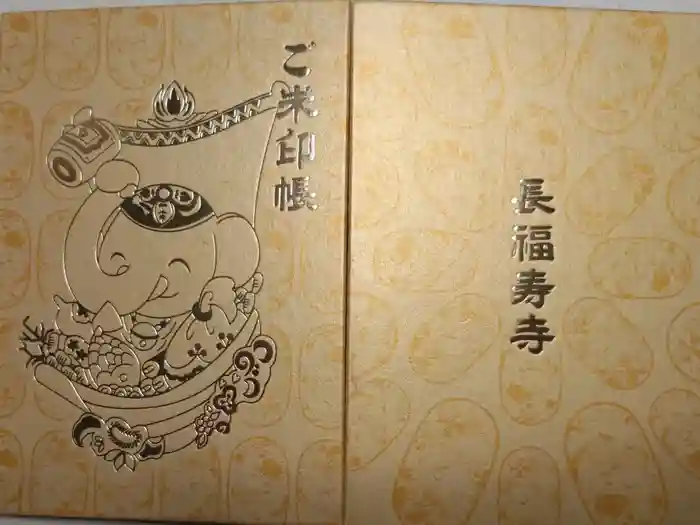 ご米印帳
長福寿寺